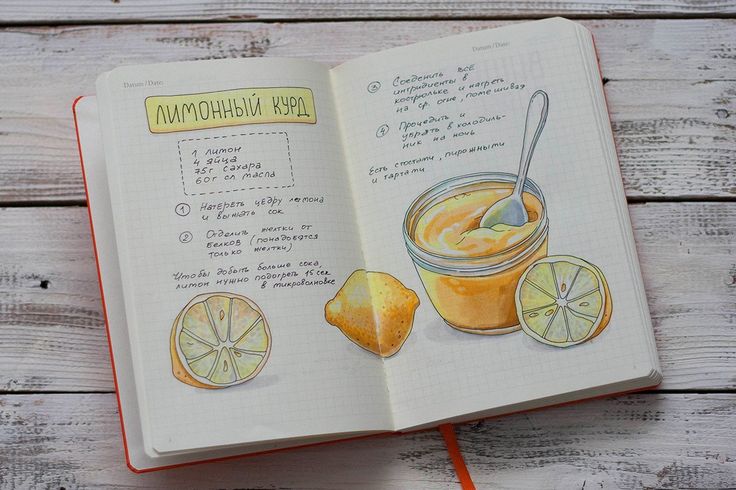 Datum / Date:
ЛИМОННЫЙ КУРД
1 лимон
4 яйца
75г сахара
60г сл масла
1 Натереть цедру лимона
и выжать сок
2 Отделить желтки от
белков (понадобятся
только желтки)
Чтобы добыть больше сока
лимон нужно подогреть 15 сек
в микроволновке
Datum / Date:
3 Соеденить все
ингридиенты в
кострюльке и нагреть
на ср. огне, помешивая
4 Процедить и
убрать в холодиль-
ник на ночь
Есть стостами, пирожными
и тартами